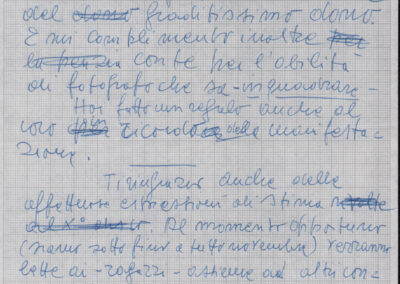 del dono graditissimo dono.
E mi complimento inoltre per
la perizia con te per l'abilità
di fotografo che sa inquadrare -
Hai fatto un regalo anche al
coro ricordo della manifesta-
zione.
Ti ringrazio anche delle
affettuose espressioni di stima
Al momento opportuno
(siamo sotto fino a tutto novembre) verranno
lette ai - ragazzi - assieme ad altri con=